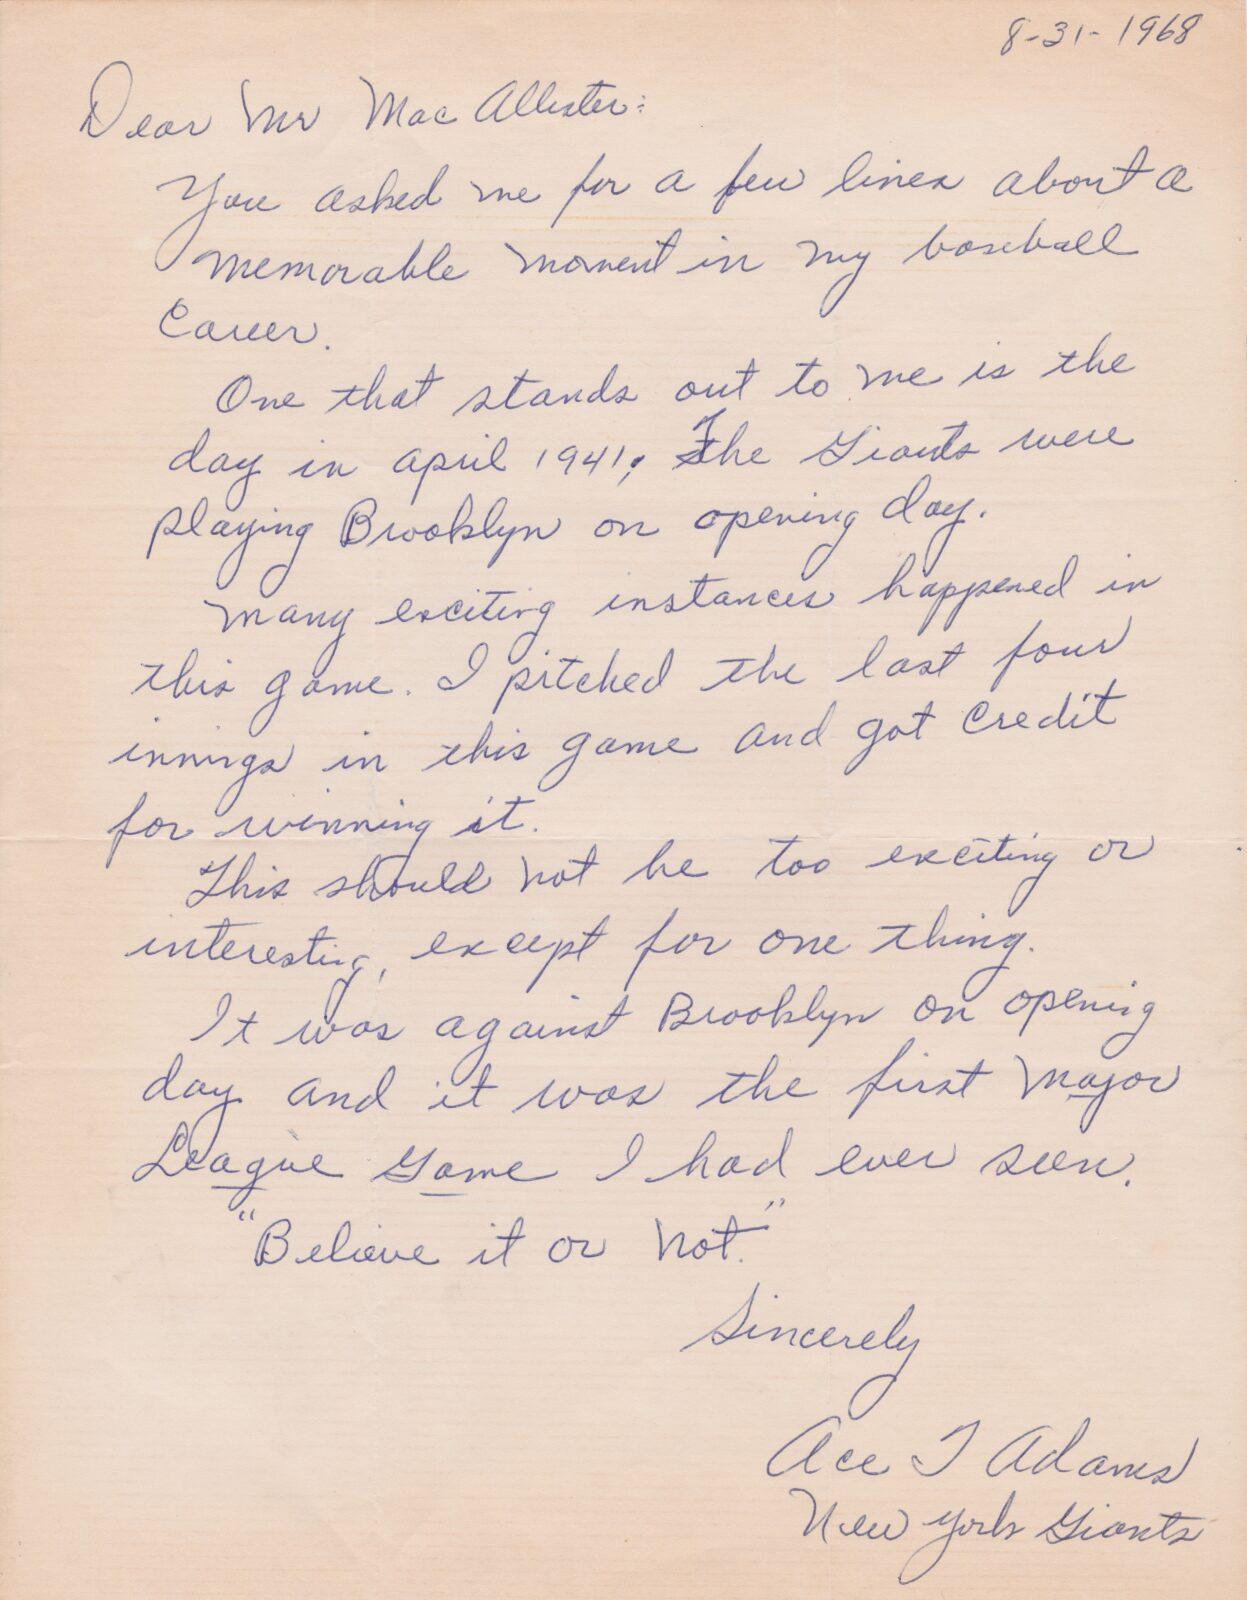 8-31-1968
Dear Mr Mac Allister:
You asked me for a few lines about a
memorable moment in my baseball
Career.
One that stands out to me is the
day in april 1941, The Giants were
playing Brooklyn on opening day.
Many exciting instances happened in
this game. I pitched the last four
innings in this game and got credit
for winning it.
This should not be too exciting or
interesting, except for one thing.
It was against Brooklyn on opening
day and it was the first Major
League Game I had ever seen.
"Believe it or not."
Sincerely
Ace T Adams
New York Giants